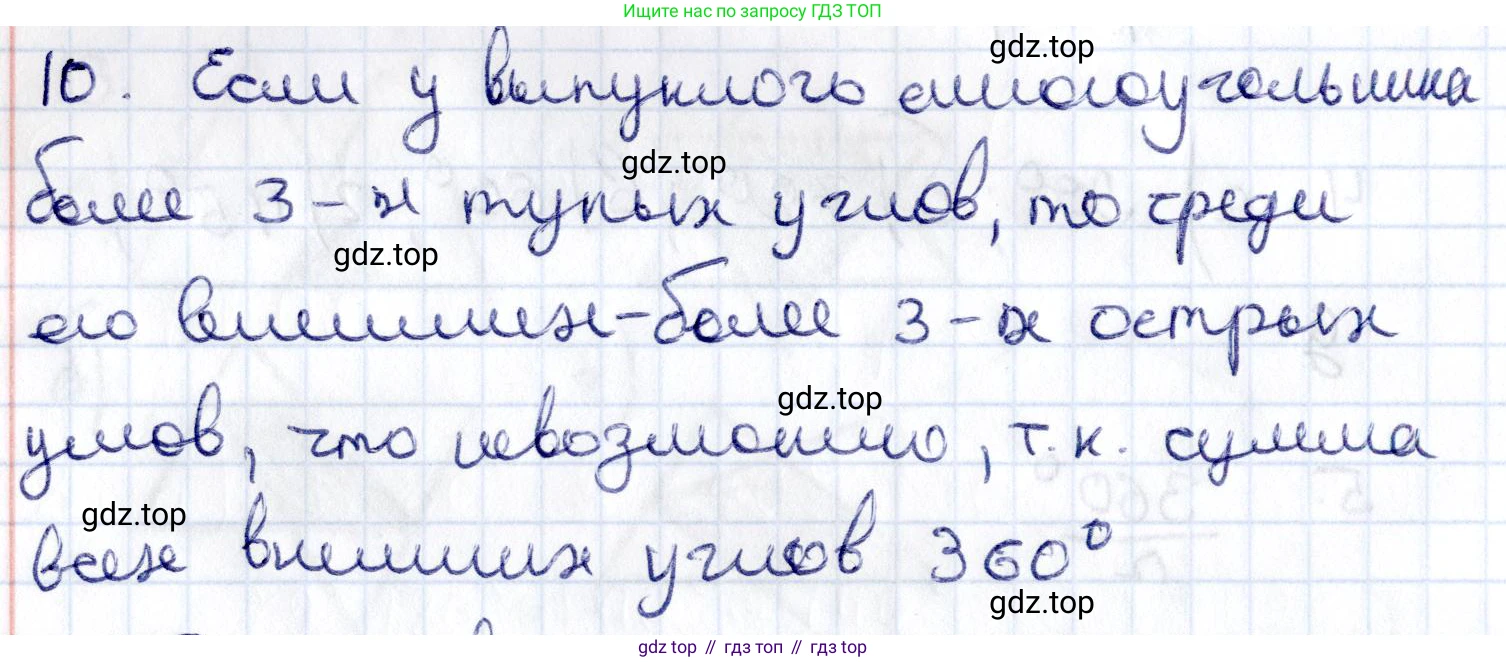 Ищите нас по запросу ГДЗ ТОП
gdz.top
10. Если у выпуклого многоугольника
gdz.top
более 3-х тупых углов, то среди
gdz.top
его внешних-более 3-х острых
gdz.top
углов, что невозможно, т.к. сумма
gdz.top
всех внешних углов 360°
gdz.top
gdz top // гдз топ // гдз top